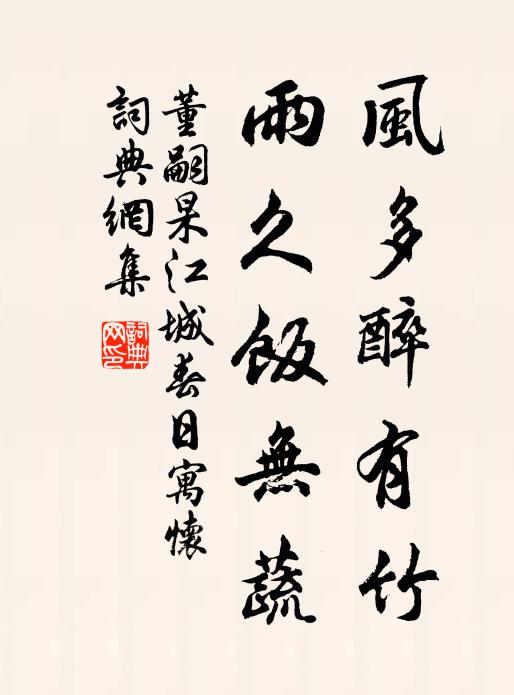 風多醉有竹
雨久飯無蔬
董嗣杲江城春日寓懷
詞典網集
詞典網印